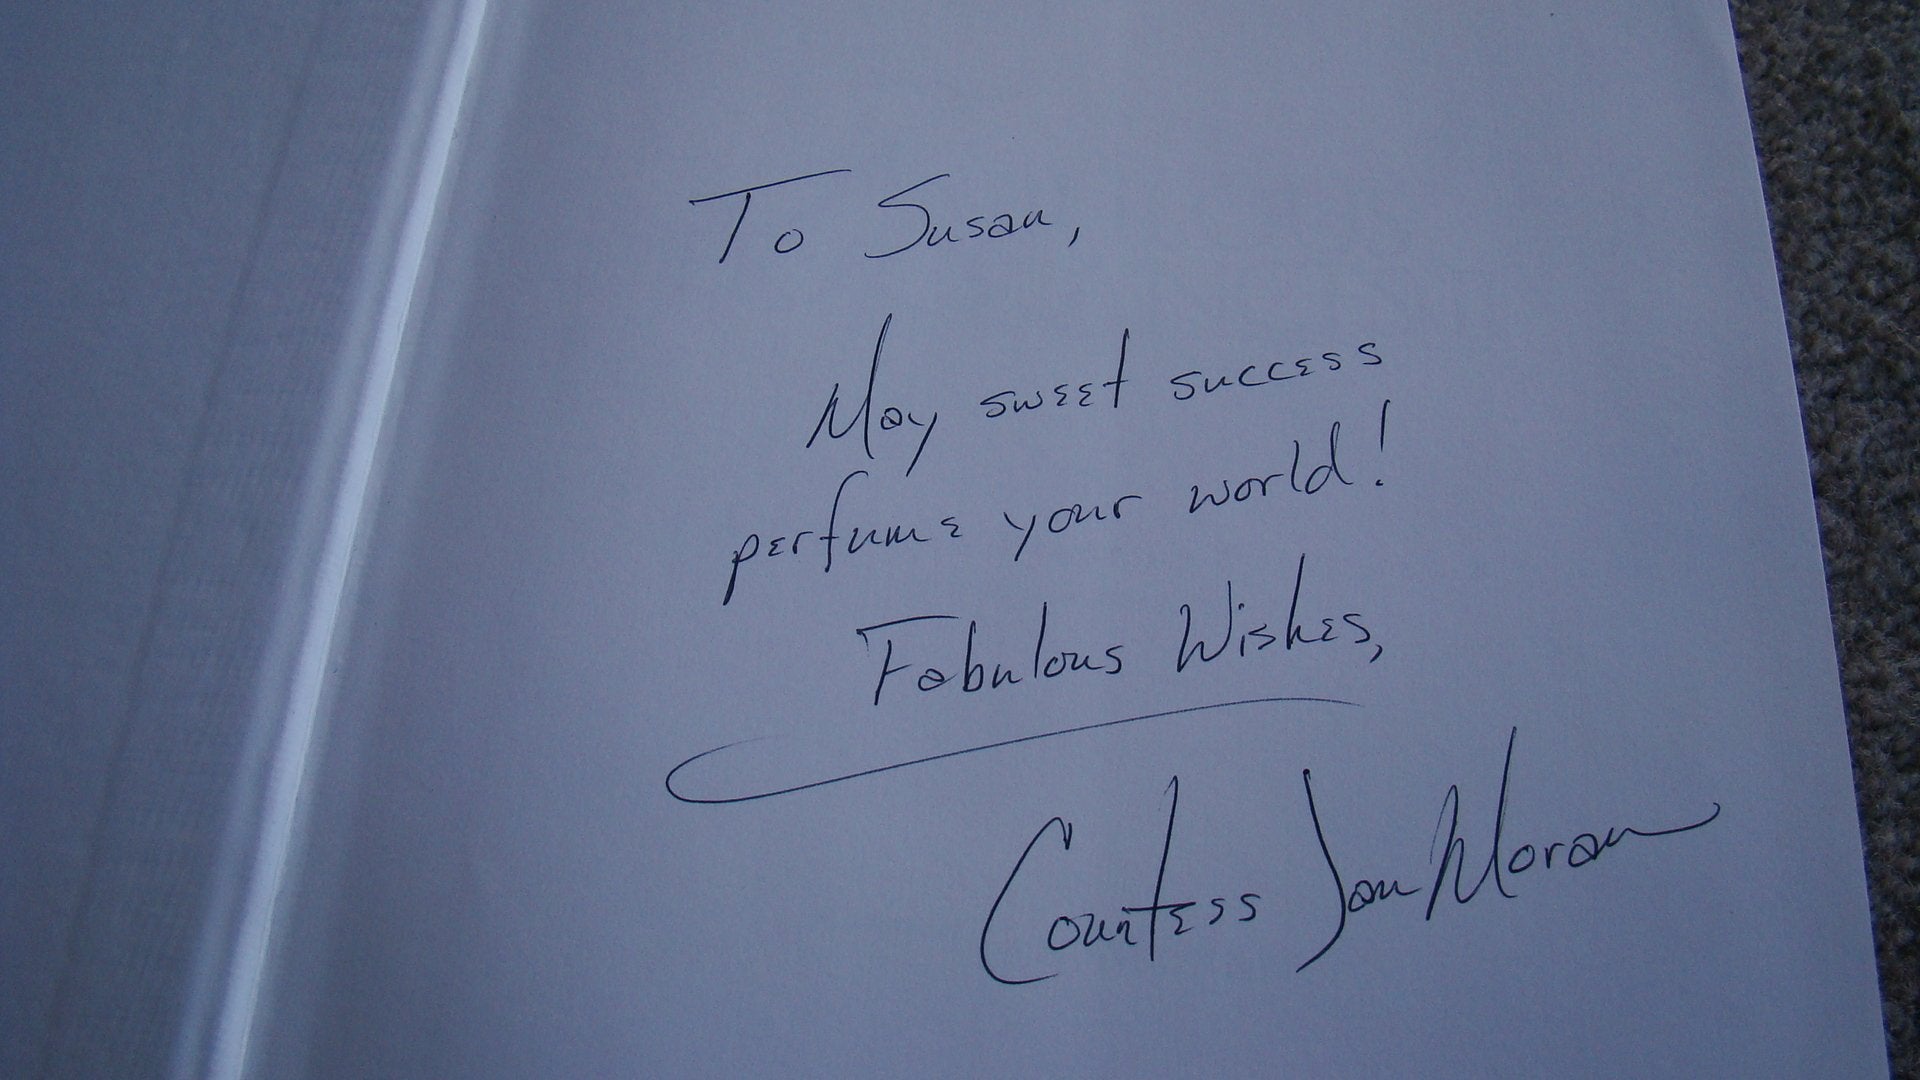 To Susan,
May sweet success
perfume your world!
Fabulous Wishes,
Countess Jan Moran